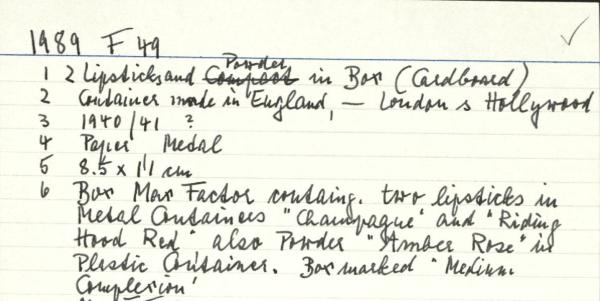 1989 F 49
1 2 Lipsticks and Compact Powder in Box (Cardboard)
2 Container made in England, — London & Hollywood
3 1940/41 ?
4 Paper Metal
5 8.5 x 11 cm
6 Box Max Factor containg. two lipsticks in
Metal Containers "Champagne" and "Riding
Hood Red" also Powder "Amber Rose" in
Plastic Container. Box marked "Medium
Complexion'